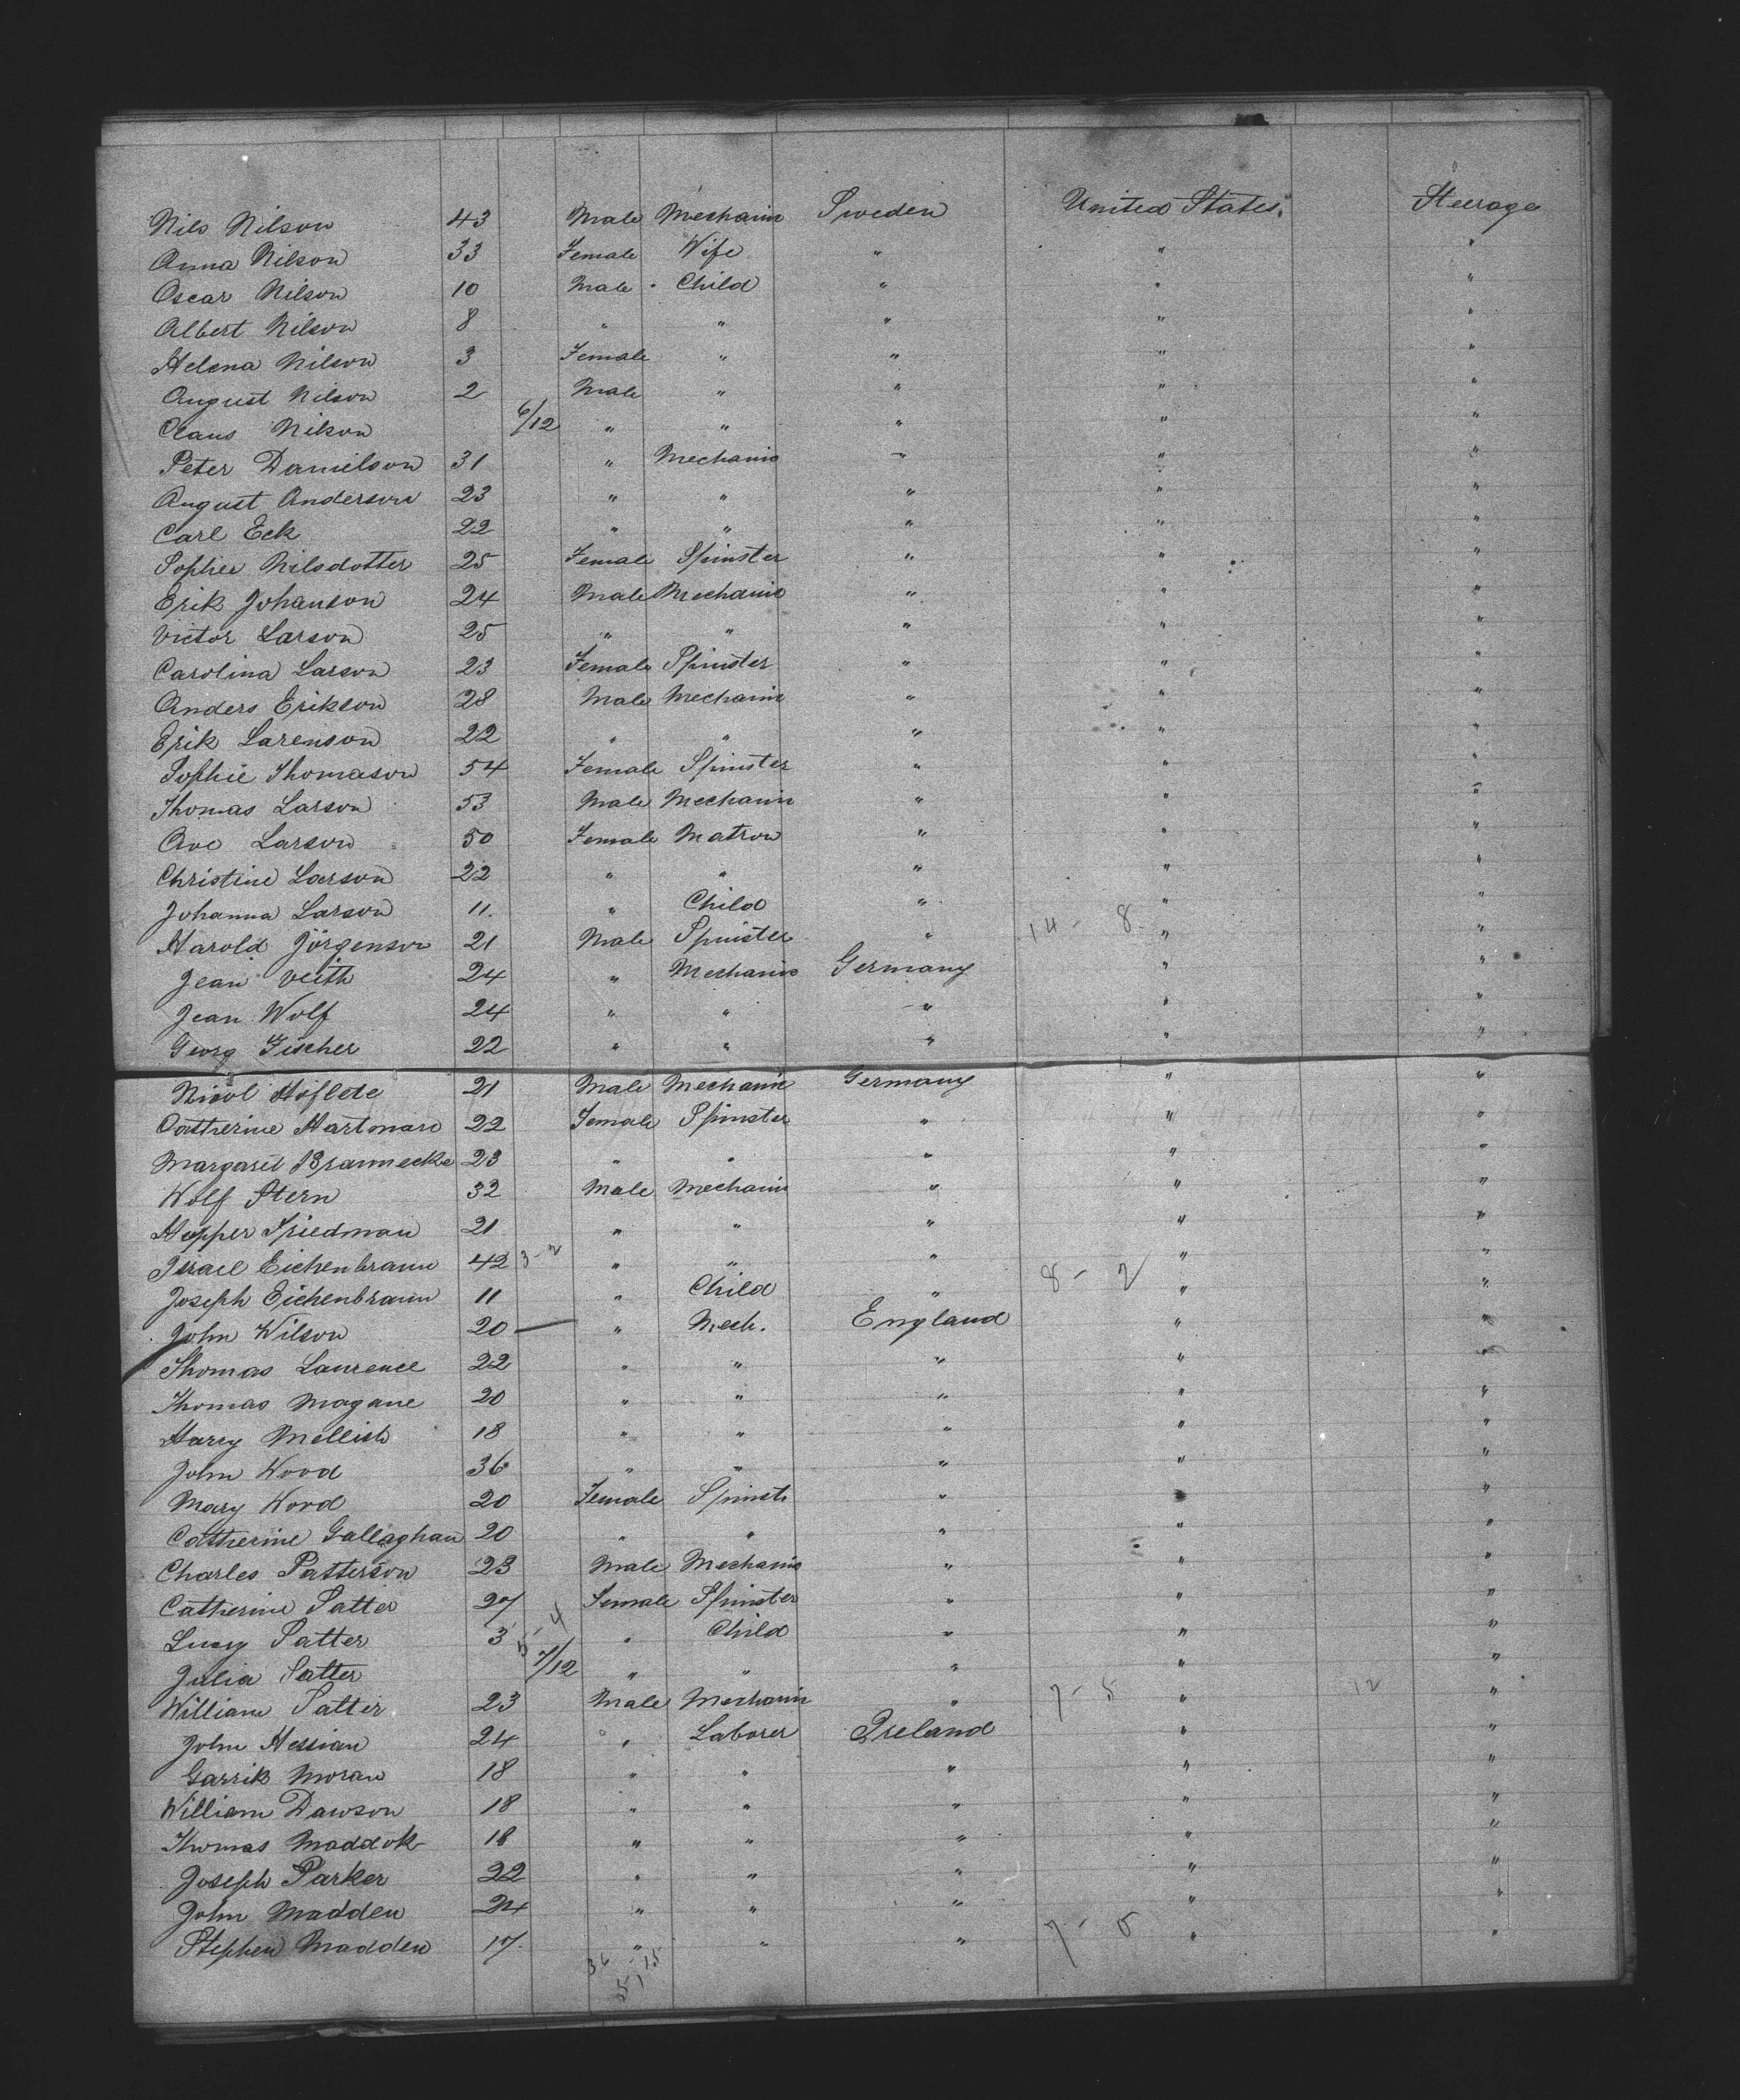 Nils Nilson 43 Male Mechanic Sweden United States Steerage
Anna Nilson 33 Female Wife " " "
Oscar Nilson 10 Male Child " " "
Albert Nilson 8 " " " " "
Helena Nilson 3 Female " " " "
August Nilson 2 Male " " " "
Claus Nilson 6/12 " " " " "
Peter Danielson 31 " Mechanic " " "
August Anderson 23 " " " " "
Carl Eck 22 " " " " "
Sophie Nilsdotter 25 Female Spinster " " "
Erik Johanson 24 Male Mechanic " " "
Victor Larson 25 " " " " "
Carolina Larson 23 Female Spinster " " "
Anders Erikson 28 Male Mechanic " " "
Erik Larenson 22 " " " " "
Sophie Thomason 54 Female Spinster " " "
Thomas Larson 53 Male Mechanic " " "
Ave Larson 50 Female Matron " " "
Christine Larson 22 " " " " "
Johanna Larson 11 " Child " " "
Harold Jörgenson 21 Male Spinster " 14 - 8 " "
Jean Veith 24 " Mechanic Germany " "
Jean Wolf 24 " " " " "
Georg Fischer 22 " " " " "
Nicol 21 Male Mechanic Germany " "
Catherine Hartmann 22 Female Spinster " " "
Margaret Brannecke 23 " " " " "
Wolf Stern 32 Male Mechanic " " "
Hepper Friedman 21 " " " " "
Israel Eichenbraun 42 3-2 " " " " "
Joseph Eichenbraun 11 " Child " 8 - 2 " "
John Wilson 20 — " Mech. England " "
Thomas Laurence 22 " " " " "
Thomas Magane 20 " " " " "
Harry Mellish 18 " " " " "
John Wood 36 " " " " "
Mary Wood 20 Female Spinst " " "
Catherine Gallaghan 20 " " " " "
Charles Patterson 23 Male Mechanic " " "
Catherine Salter 27 Female Spinster " " "
Lucy Salter 3 5-4 " Child " " "
Julia Salter 7/12 " " " " "
William Salter 23 Male Mechanic " 7 - 5 " 12 "
John Hessian 24 " Laborer Ireland " "
Garrik Moran 18 " " " " "
William Dawson 18 " " " " "
Thomas Maddok 18 " " " " "
Joseph Parker 22 " " " " "
John Madden 24 " " " " "
Stephen Madden 17 " " " 7 - 0 " "
36 - 15
51